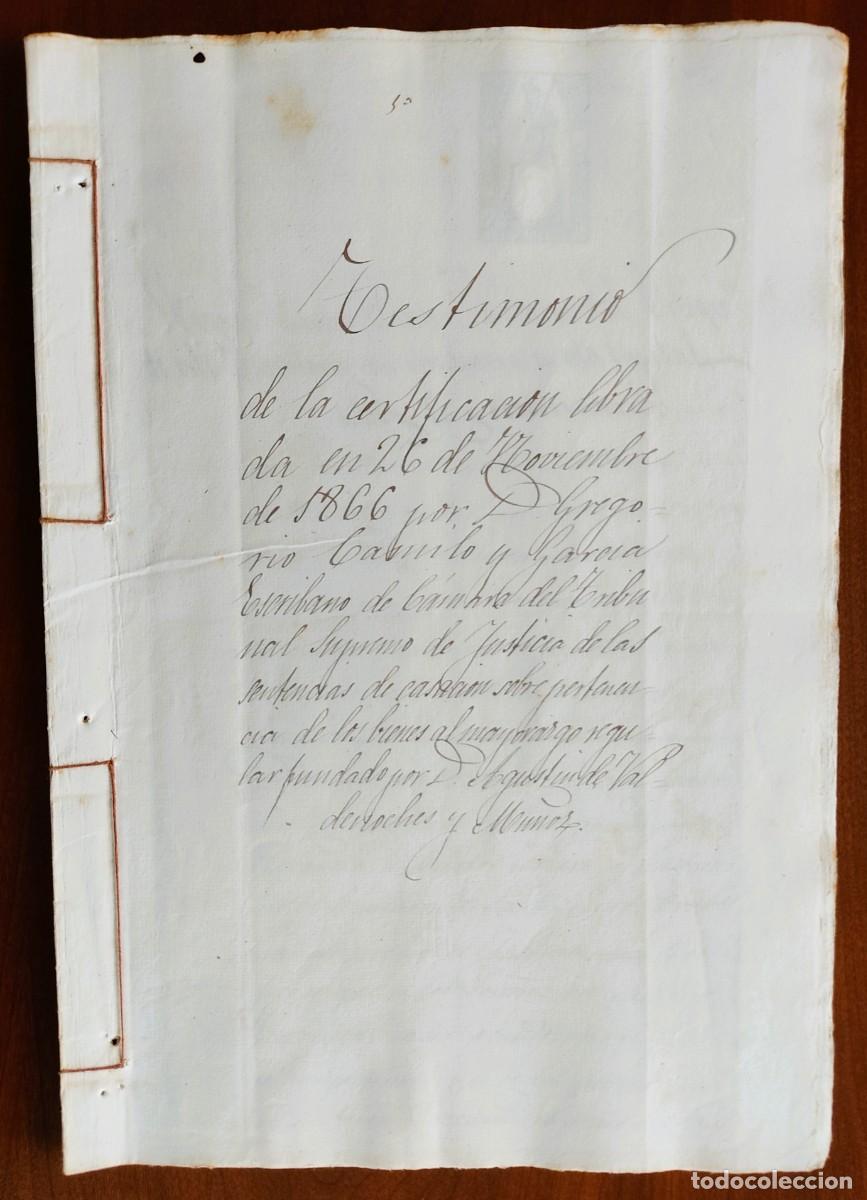 5º
Testimonio
de la certificacion libra
da en 26 de Noviembre
de 1866 por D. Grego-
rio Camilo y Garcia
Escribano de Cámara del Tribu
nal Supremo de Justicia de las
sentencias de casacion sobre pertenen-
cia de los bienes al mayorazgo regu-
lar fundado por D. Agustin de Val-
denoches y Muñoz.
todocoleccion